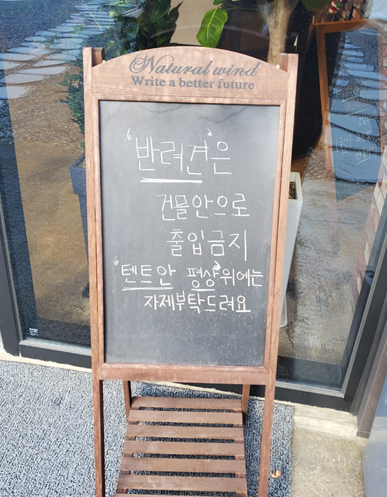 Natural wind
Write a better future
'반려견'은
건물안으로
출입금지
'텐트안 평상'위에는
자제부탁드려요